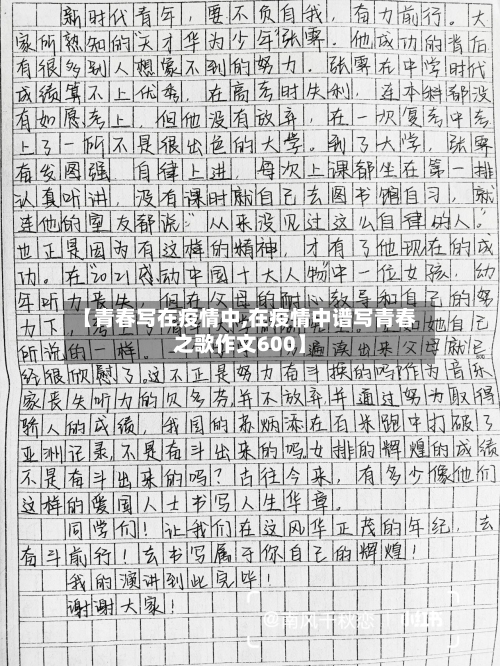 新时代青年，要不负自我，奋力前行。大
家所熟知的“天才华为少年”张霁。他成功的背后
有很多别人想象不到的努力。张霁在中学时代
成绩算不上优秀，在高考时失利，连本科都没
有如愿考上，但他没有放弃，在一次复考中考
上了一所不是很出色的大学。到了大学，张霁
奋发图强，自律上进，每次上课都坐在第一排
认真听讲，没有课时就自己去图书馆自习，就
连他的室友都说：“从来没见过这么自律的人。”
也正是因为有这样的精神，才有了他现在的成
功。在“2021感动中国十大人物”中一位女孩，幼
年听力丧失，但在父母的耐心教导和自己的努
力下，考
【青春写在疫情中,在疫情中谱写青春
之歌作文600】
所说的一样。遍读出来父母就已
经很欣慰了。这不正是努力奋斗换的吗？作为音乐
家丧失听力的贝多芬，并不放弃，并通过努力取得
骄人的成绩，我国的苏炳添在百米跑中打破了
亚洲记录，不是奋斗出来的吗？女排的辉煌的成绩
不是奋斗出来的吗？古往今来，有多少像他们
这样的爱国人士书写人生华章。
同学们！让我们在这风华正茂的年纪，去
奋斗前行！去书写属于你自己的辉煌！
我的演讲到此完毕！
谢谢大家！
@南风千秋恋
小红书